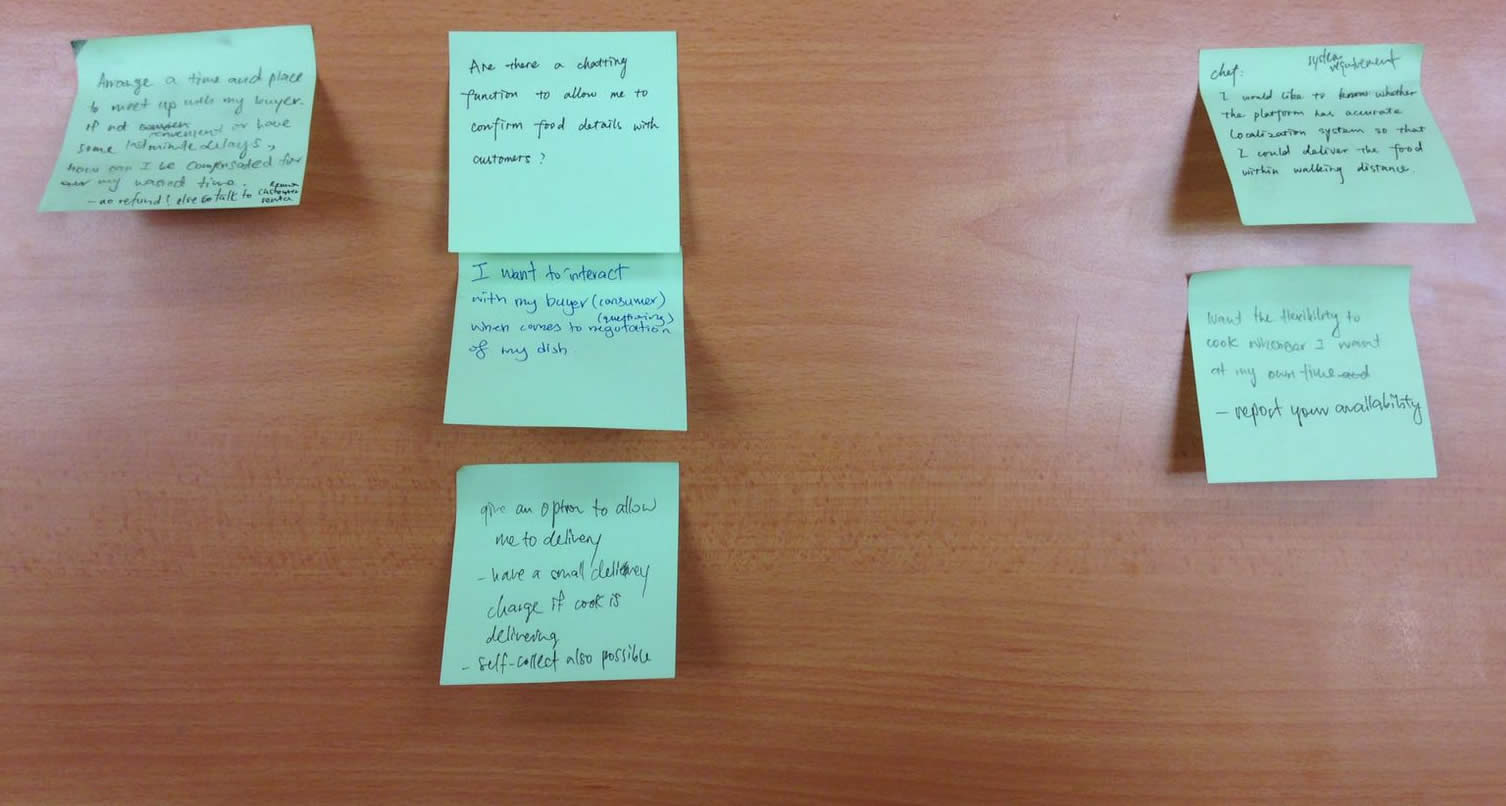 Arrange a time and place
to meet up with my buyer.
if not convenient or have
some last minute delays,
how can I be compensated for
my wasted time.
- no refund! else go talk to customer
service
Are there a chatting
function to allow me to
confirm food details with
customers?
I want to interact
with my buyer (consumer)
(questioning)
when comes to negotation
of my dish
give an option to allow
me to delivery
- have a small delivery
charge if cook is
delivering
- self-collect also possible
chef:
system
requirement
I would like to know whether
the platform has accurate
localization system so that
I could deliver the food
within walking distance.
want the flexibility to
cook whenever I want
at my own time and
- report your availability